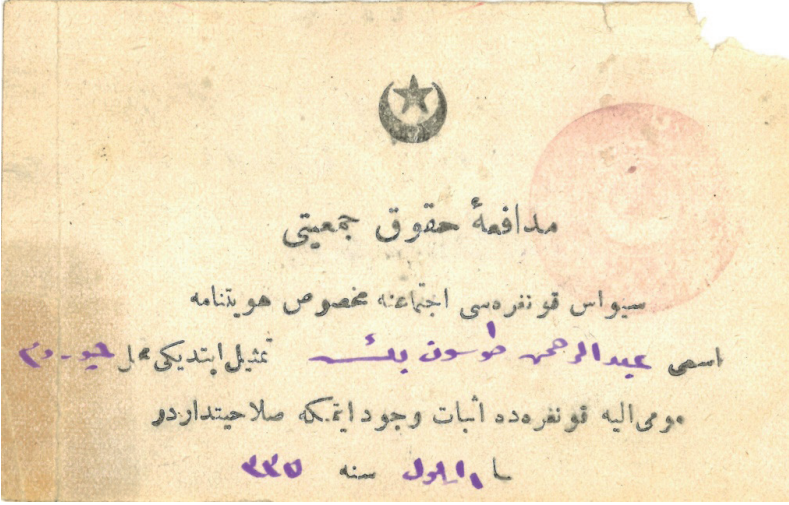 مدافعهٔ حقوق جمعیتی
سیواس قونفره‌سی اجتماعنه مخصوص هویتنامه
اسمی عبدالرحمن طوسون بك تمثیل ایتدیکی محل
مومی الیه قونفره‌ده اثبات وجود ایتمکه صلاحیتداردر
ایلول سنه ٣٣٥